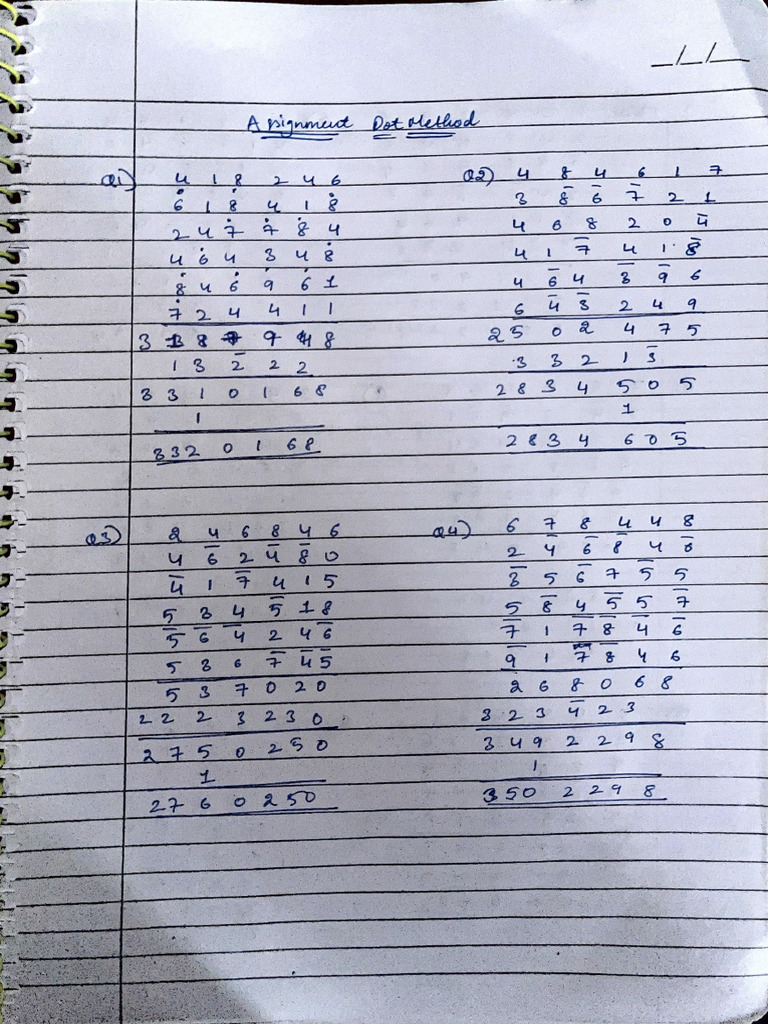 _/_/_
Assignment Dot Method
Q1) 4 1 8 2 4 6
6 1 8 4 1 8
2 4 7 7 8 4
4 6 4 3 4 8
8 4 6 9 6 1
7 2 4 4 1 1
3 8 9 8
1 3 2 2 2
3 3 1 0 1 6 8
1
332 0 1 68
Q2) 4 8 4 6 1 7
3 8 6 7 2 1
4 6 8 2 0 4
4 1 7 4 1 8
4 6 4 3 9 6
6 4 3 2 4 9
25 0 2 4 7 5
3 3 2 1 3
2 8 3 4 5 0 5
1
2 8 3 4 6 0 5
Q3) 2 4 6 8 4 6
4 6 2 4 8 0
4 1 7 4 1 5
5 3 4 5 1 8
5 6 4 2 4 6
5 3 6 7 4 5
5 3 7 0 2 0
2 2 2 3 2 3 0
2 7 5 0 2 5 0
1
27 6 0 2 5 0
Q4) 6 7 8 4 4 8
2 4 6 8 4 0
3 5 6 7 5 5
5 8 4 5 5 7
7 1 7 8 4 6
9 1 7 8 4 6
2 6 8 0 6 8
3 2 3 4 2 3
3 4 9 2 2 9 8
1
350 2 2 9 8